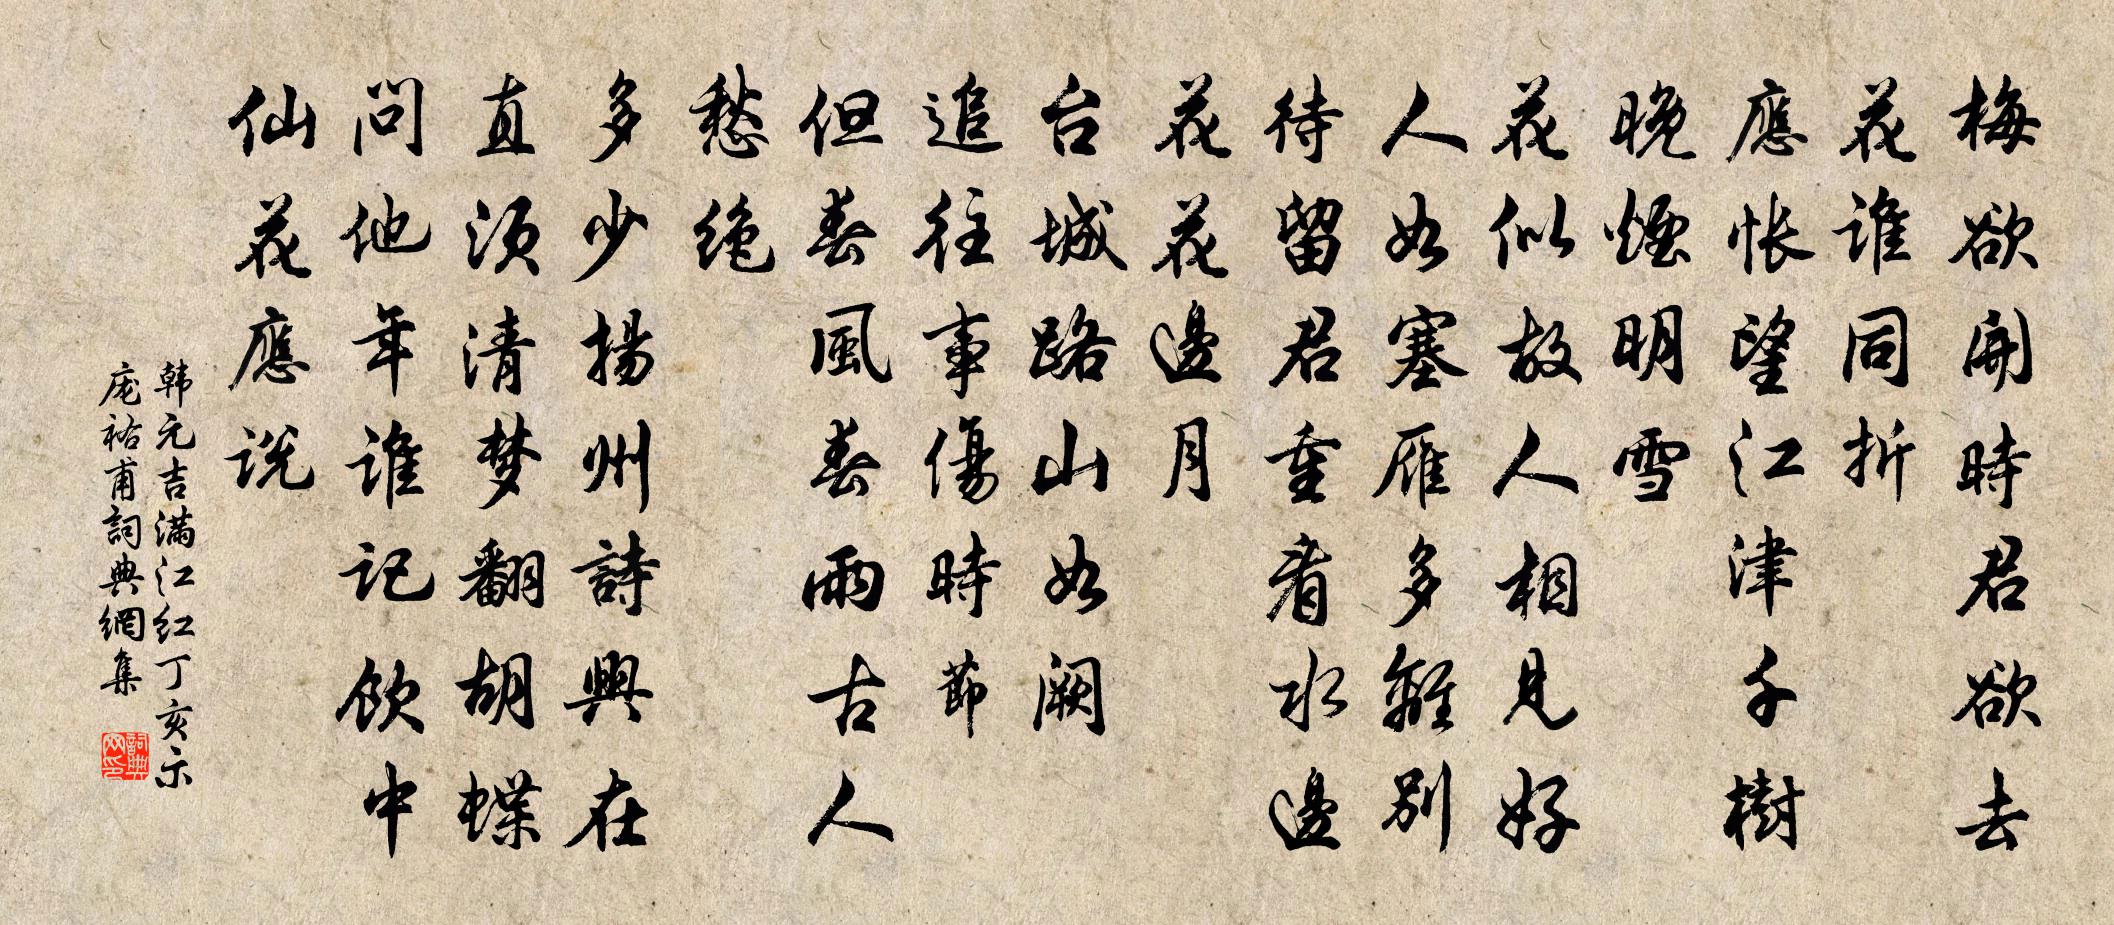 梅欲開時君欲去
花谁同折
應怅望江津千樹
晚煙明雪
花似故人相見好
人如塞雁多離别
待留君重看水邊
花花邊月
台城路山如阙
追往事傷時節
但春風春雨古人
愁绝
多少揚州詩興在
直须清梦翻胡蝶
問他年谁记饮中
仙花應说
韩元吉满江红丁亥示
庞祐甫詞典網集
詞典
网印